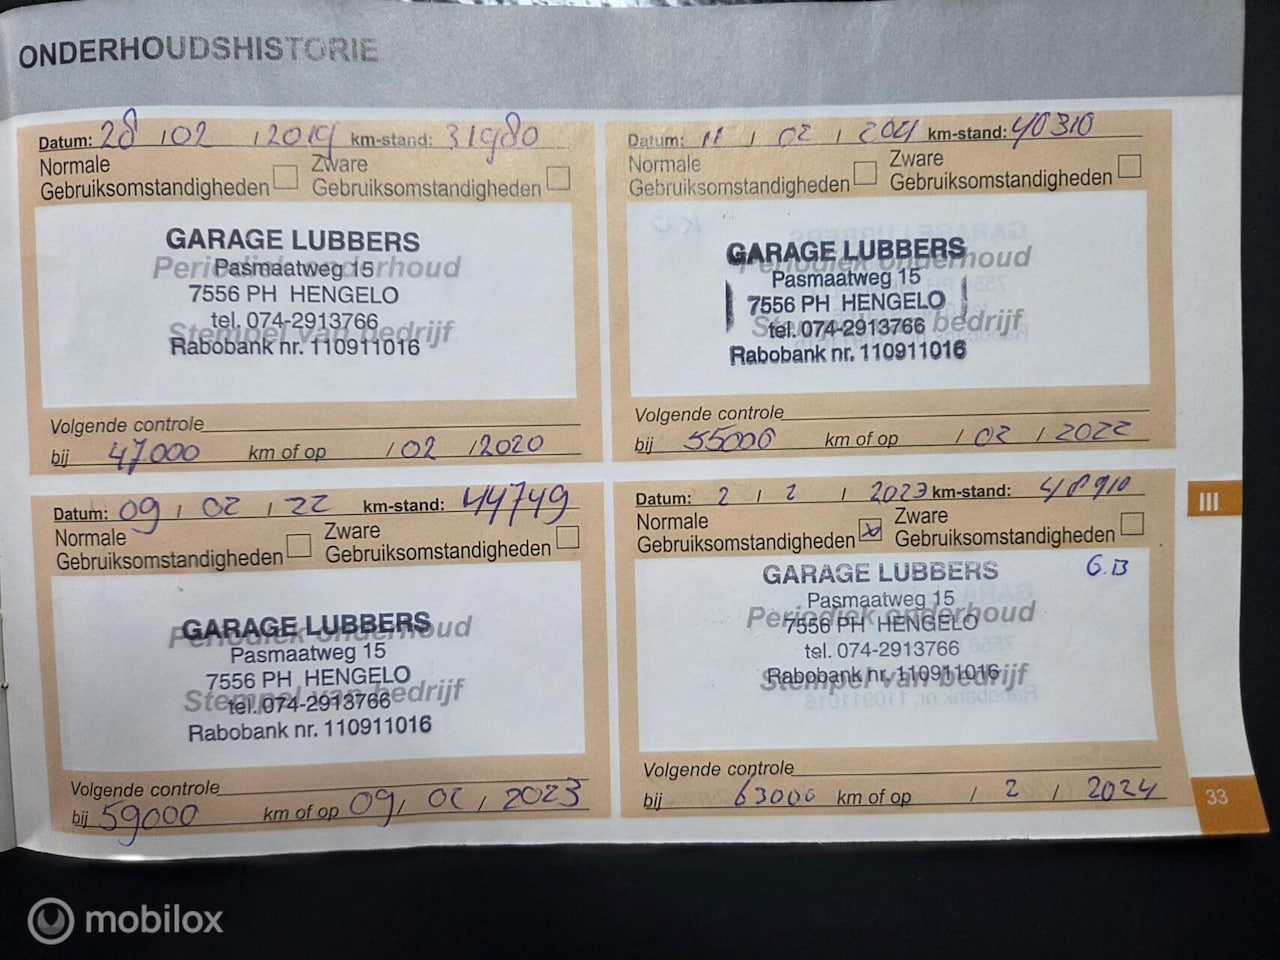 ONDERHOUDSHISTORIE
Datum: 28 / 02 / 2019 km-stand: 31980
Normale
Gebruiksomstandigheden
Zware
Gebruiksomstandigheden
GARAGE LUBBERS
Periodiek onderhoud
Pasmaatweg 15
7556 PH HENGELO
tel. 074-2913766
Stempel van bedrijf
Rabobank nr. 110911016
Volgende controle
bij 47000 km of op / 02 / 2020
Datum: 11 / 02 / 2021 km-stand: 40310
Normale
Gebruiksomstandigheden
Zware
Gebruiksomstandigheden
GARAGE LUBBERS
Periodiek onderhoud
Pasmaatweg 15
7556 PH HENGELO
Stempel van bedrijf
tel. 074-2913766
Rabobank nr. 110911016
Volgende controle
bij 55000 km of op / 02 / 2022
Datum: 09 / 02 / 22 km-stand: 44749
Normale
Gebruiksomstandigheden
Zware
Gebruiksomstandigheden
GARAGE LUBBERS
Periodiek onderhoud
Pasmaatweg 15
7556 PH HENGELO
Stempel van bedrijf
tel. 074-2913766
Rabobank nr. 110911016
Volgende controle
bij 59000 km of op 09 / 02 / 2023
Datum: 2 / 2 / 2023 km-stand: 48910
Normale
Gebruiksomstandigheden
Zware
Gebruiksomstandigheden
GARAGE LUBBERS
G.B
Pasmaatweg 15
Periodiek onderhoud
7556 PH HENGELO
tel. 074-2913766
Rabobank nr. 110911016
Stempel van bedrijf
Volgende controle
bij 63000 km of op / 2 / 2024
III
33
mobilox